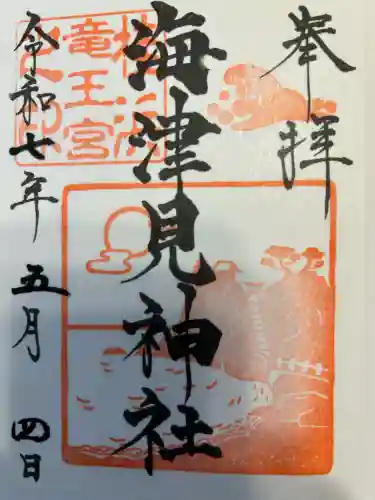 奉拝
海津見神社
令和七年 五月 四日
竜王宮